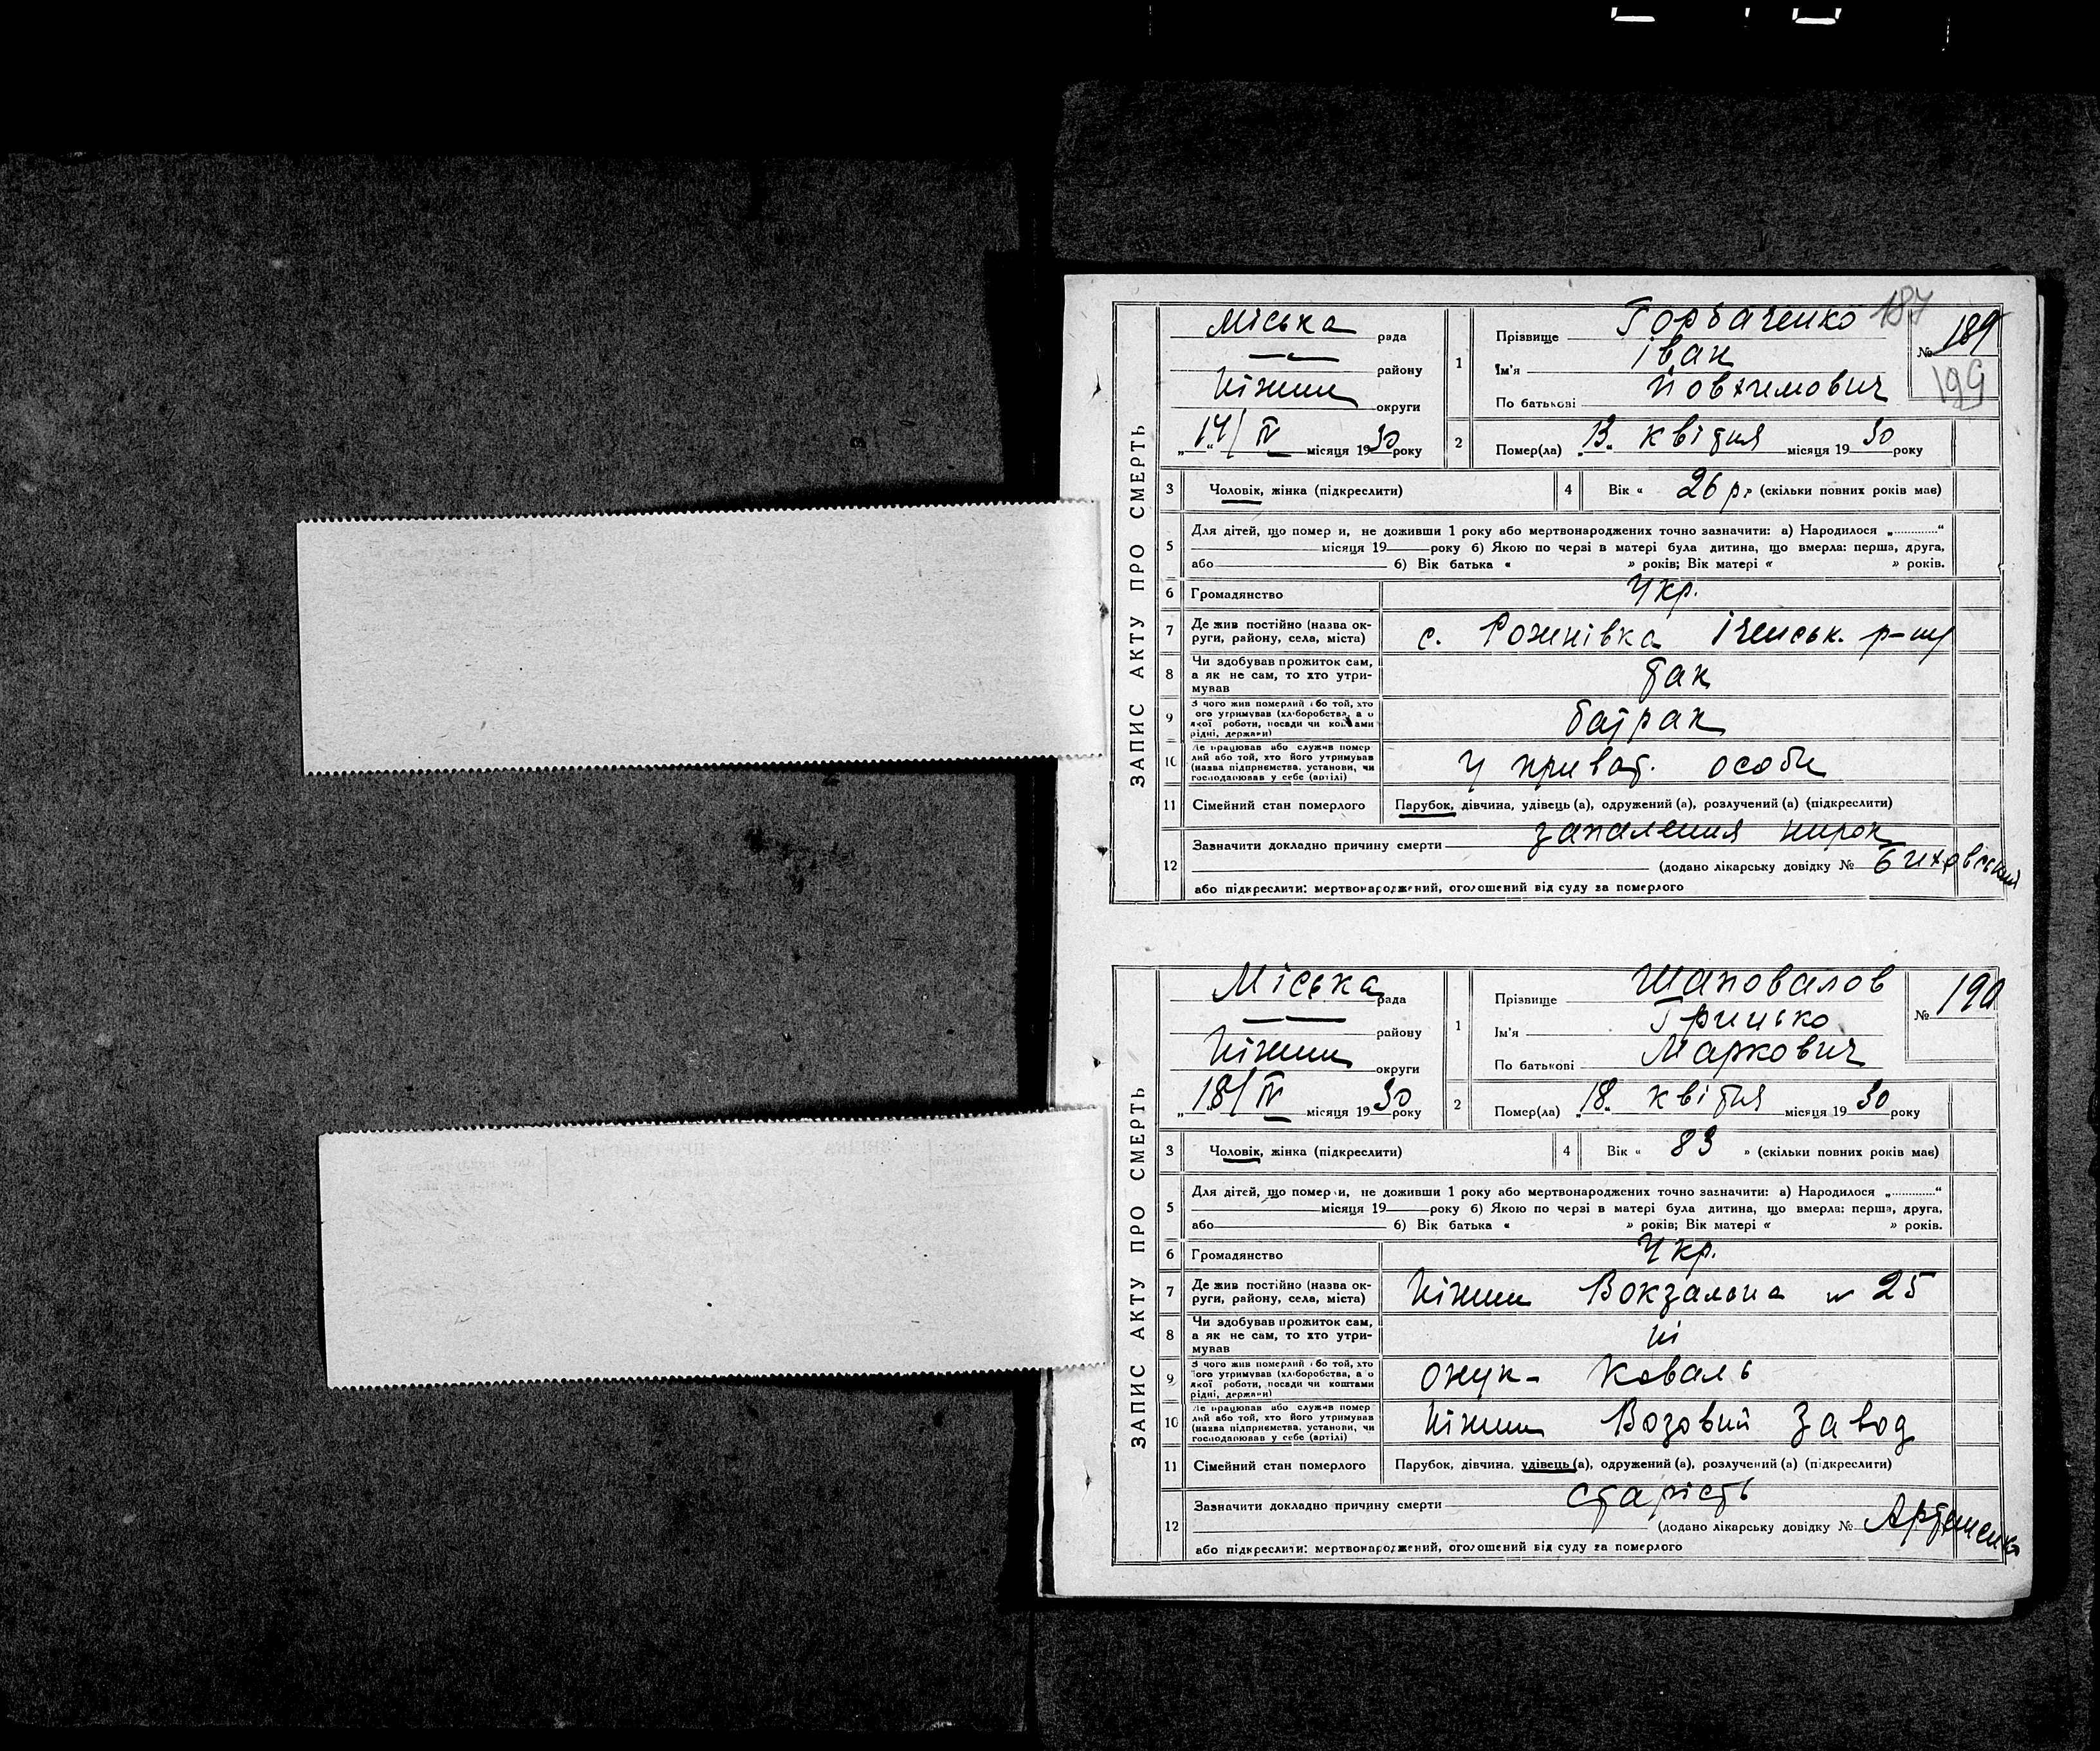 ЗАПИС АКТУ ПРО СМЕРТЬ
Міська рада
району
Ніжин округи
„14/“ IV місяця 1930 року
1 Прізвище Горбаченко 187
Ім'я Іван
По батькові Йовхимович
№ 189
199
2 Помер(ла) „13“ квітня місяця 1930 року
3 Чоловік, жінка (підкреслити)
4 Вік « 26 р. » (скільки повних років має)
5 Для дітей, що помер и, не доживши 1 року або мертвонароджених точно зазначити: а) Народилося „............“
місяця 19 року б) Якою по черзі в матері була дитина, що вмерла: перша, друга,
або б) Вік батька « » років; Вік матері « » років.
6 Громадянство Укр.
7 Де жив постійно (назва ок-
руги, району, села, міста) с. Рожнівка Іченськ. р-ну
8 Чи здобував прожиток сам,
а як не сам, то хто утри-
мував так
9 З чого жив померлий або той, хто
його утримував (хліборобства, а о
якої роботи, посади чи коштами
рідні, держави) батрак
10 Де працював або служив помер
лий або той, хто його утримував
(назва підприємства, установи, чи
господарював у себе (артілі) У приват. особи
11 Сімейний стан померлого Парубок, дівчина, удівець (а), одружений (а), розлучений (а) (підкреслити)
12 Зазначити докладно причину смерти запалення нирок
(додано лікарську довідку №
або підкреслити: мертвонароджений, оголошений від суду за померлого
ЗАПИС АКТУ ПРО СМЕРТЬ
Міська рада
району
Ніжин округи
„18/“ IV місяця 1930 року
1 Прізвище Шаповалов
Ім'я Грицько
По батькові Маркович
№ 190
2 Помер(ла) „18“ квітня місяця 1930 року
3 Чоловік, жінка (підкреслити)
4 Вік « 83 » (скільки повних років має)
5 Для дітей, що помер и, не доживши 1 року або мертвонароджених точно зазначити: а) Народилося „............“
місяця 19 року б) Якою по черзі в матері була дитина, що вмерла: перша, друга,
або б) Вік батька « » років; Вік матері « » років.
6 Громадянство Укр.
7 Де жив постійно (назва ок-
руги, району, села, міста) Ніжин Вокзальна № 25
8 Чи здобував прожиток сам,
а як не сам, то хто утри-
мував ні
9 З чого жив померлий або той, хто
його утримував (хліборобства, а о
якої роботи, посади чи коштами
рідні, держави) онук - коваль
10 Де працював або служив помер
лий або той, хто його утримував
(назва підприємства, установи, чи
господарював у себе (артілі) Ніжин Возовий Завод
11 Сімейний стан померлого Парубок, дівчина, удівець (а), одружений (а), розлучений (а) (підкреслити)
12 Зазначити докладно причину смерти старість
(додано лікарську довідку № Артеменко
або підкреслити: мертвонароджений, оголошений від суду за померлого